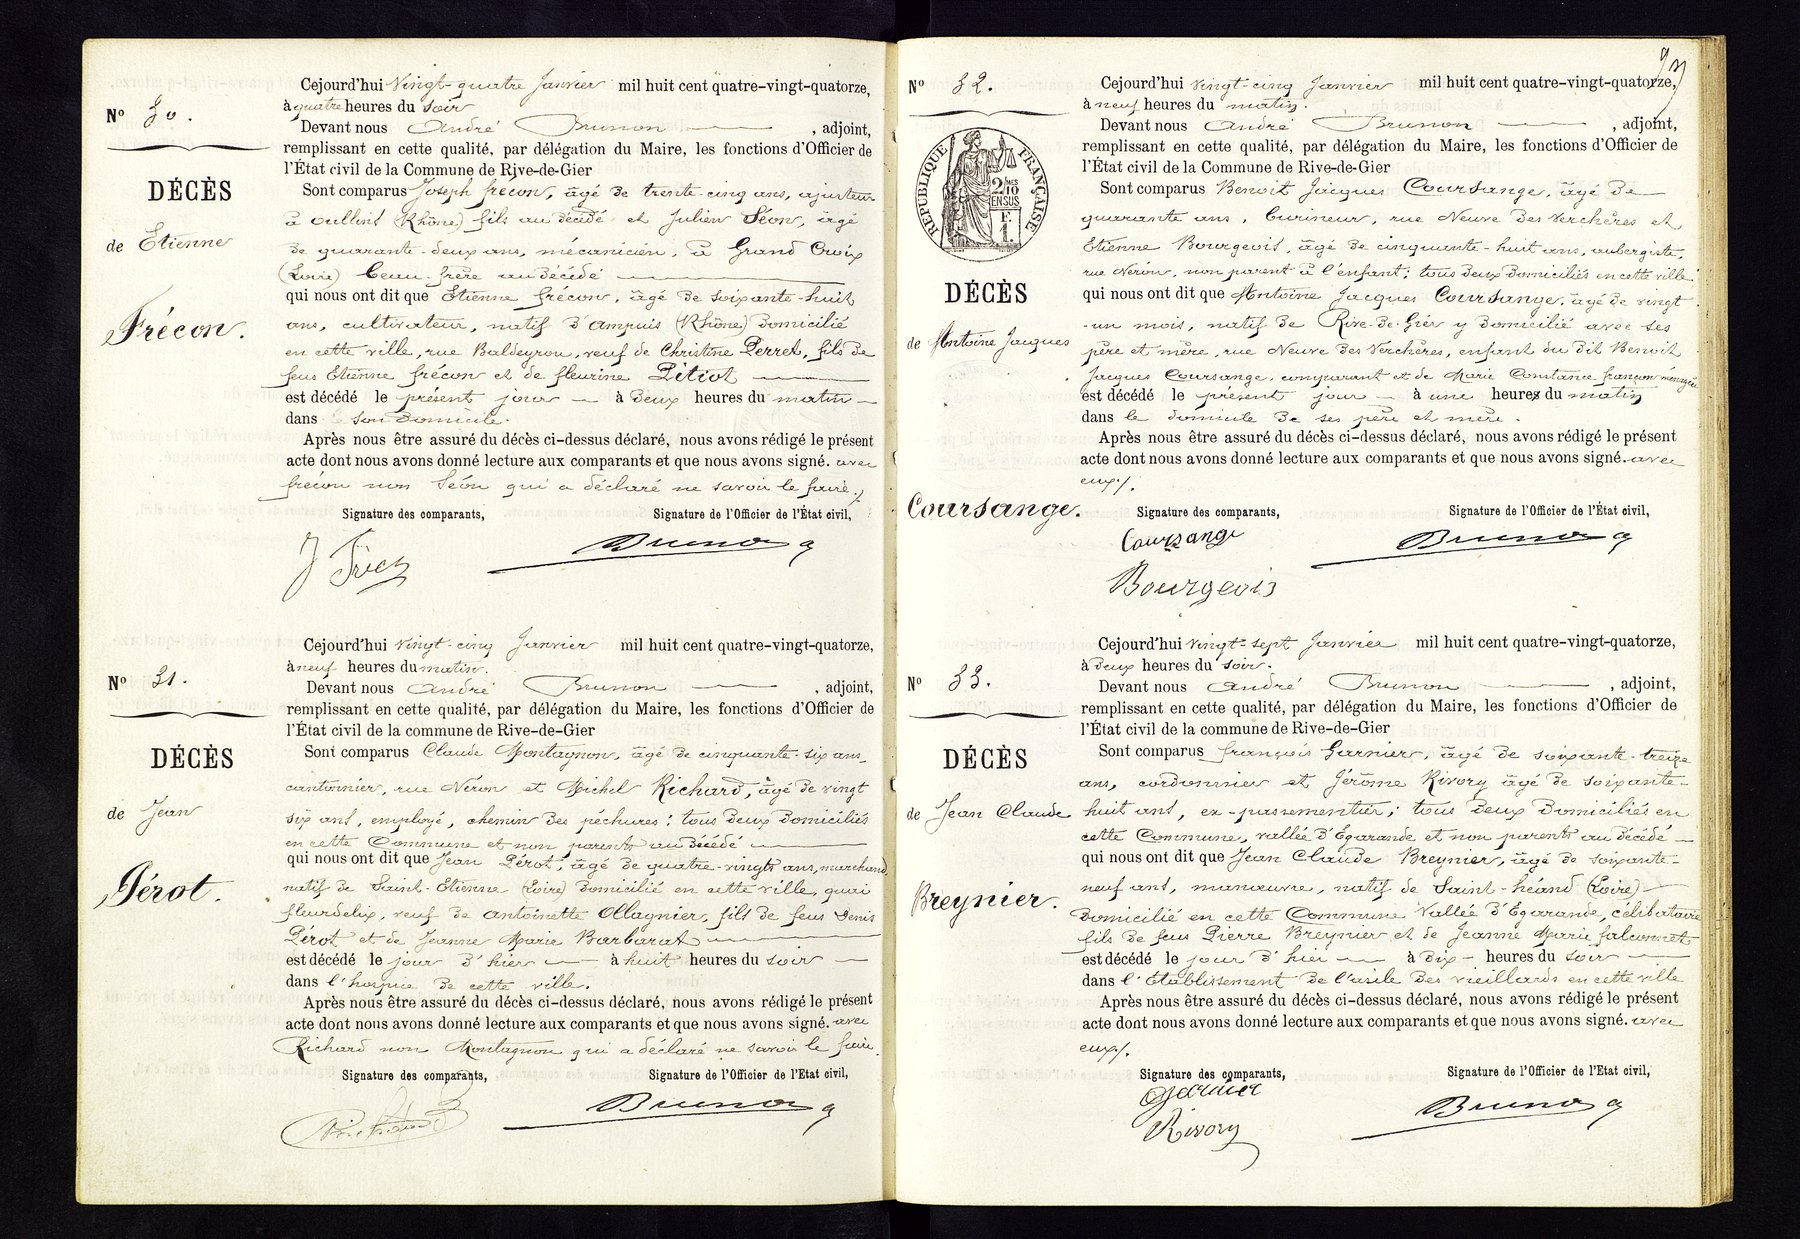 Nº 30.
DÉCÈS
de Etienne
Frécon.
Cejourd'hui Vingt-quatre Janvier mil huit cent quatre-vingt-quatorze,
à quatre heures du soir
Devant nous André Brunon , adjoint,
remplissant en cette qualité, par délégation du Maire, les fonctions d'Officier de
l'État civil de la Commune de Rive-de-Gier
Sont comparus Joseph frécon, âgé de trente cinq ans, ajusteur
à Oullins (Rhône) fils au décédé et Julien Séon, âgé
de quarante-deux ans, mécanicien, à Grand Croix
(Loire) beau-frère au décédé
qui nous ont dit que Etienne frécon, âgé de soixante-huit
ans, cultivateur, natif d'Ampuis (Rhône) domicilié
en cette ville, rue Baldeyron, veuf de Christine Perret, fils de
feus Etienne frécon et de fleurine Pétiot
est décédé le présent jour — à deux heures du matin —
dans son domicile.
Après nous être assuré du décès ci-dessus déclaré, nous avons rédigé le présent
acte dont nous avons donné lecture aux comparants et que nous avons signé. avec
frécon non Séon qui a déclaré ne savoir le faire./.
Signature des comparants, Signature de l'Officier de l'État civil,
Brunon a
Nº 31.
DÉCÈS
de Jean
Pérot.
Cejourd'hui Vingt-cinq Janvier mil huit cent quatre-vingt-quatorze,
à neuf heures du matin.
Devant nous André Brunon — , adjoint,
remplissant en cette qualité, par délégation du Maire, les fonctions d'Officier de
l'État civil de la commune de Rive-de-Gier
Sont comparus Claude Montagnon, âgé de cinquante-six ans
cantonnier, rue Néron et Michel Richard, âgé de vingt
six ans, employé, chemin des péchures; tous deux domiciliés
en cette Commune et non parents au décédé
qui nous ont dit que Jean Pérot, âgé de quatre-vingts ans, marchand
natif de Saint-Etienne (Loire) domicilié en cette ville, quai
fleurdelix, veuf de Antoinette Ollagnier, fils de feus Denis
Pérot et de Jeanne Marie Barbarat
est décédé le jour d'hier — à huit heures du soir —
dans l'hospice de cette ville.
Après nous être assuré du décès ci-dessus déclaré, nous avons rédigé le présent
acte dont nous avons donné lecture aux comparants et que nous avons signé. avec
Richard non Montagnon qui a déclaré ne savoir le faire.
Signature des comparants, Signature de l'Officier de l'Etat civil,
Richard Brunon a
Nº 32.
RÉPUBLIQUE FRANÇAISE
2/10
EN SUS
DÉCÈS
de Antoine Jacques
Coursange.
Cejourd'hui vingt-cinq Janvier mil huit cent quatre-vingt-quatorze,
à neuf heures du matin.
Devant nous André Brunon — , adjoint,
remplissant en cette qualité, par délégation du Maire, les fonctions d'Officier de
l'État civil de la Commune de Rive-de-Gier
Sont comparus Benoit Jacques Coursange, âgé de
quarante ans, burineur, rue Neuve des Verchères et
Etienne Bourgeois, âgé de cinquante-huit ans, aubergiste,
rue Néron, non parent à l'enfant; tous deux domiciliés en cette ville
qui nous ont dit que Antoine Jacques Coursange, âgé de vingt
-un mois, natif de Rive-de-Gier y domicilié avec ses
père et mère, rue Neuve des Verchères, enfant du dit Benoit
Jacques Coursange, comparant et de Marie Constance françon ménagère
est décédé le présent jour — à une heures du matin
dans le domicile de ses père et mère.
Après nous être assuré du décès ci-dessus déclaré, nous avons rédigé le présent
acte dont nous avons donné lecture aux comparants et que nous avons signé. avec
eux./.
Signature des comparants, Signature de l'Officier de l'État civil,
Coursange Brunon a
Bourgeois
Nº 33.
DÉCÈS
de Jean Claude
Breynier.
Cejourd'hui vingt-sept Janvier mil huit cent quatre-vingt-quatorze,
à deux heures du soir.
Devant nous André Brunon — , adjoint,
remplissant en cette qualité, par délégation du Maire, les fonctions d'Officier de
l'État civil de la commune de Rive-de-Gier
Sont comparus françois Garnier, âgé de soixante-treize
ans, cordonnier et Jérôme Rivory âgé de soixante-
huit ans, ex-passementier; tous deux domiciliés en
cette Commune, vallée d'Egarande et non parents au décédé —
qui nous ont dit que Jean Claude Breynier, âgé de soixante-
neuf ans, manœuvre, natif de Saint-héand (Loire) —
domicilié en cette Commune Vallée d'Egarande, célibataire
fils de feus Pierre Breynier et de Jeanne Marie falconnet
est décédé le jour d'hier — à dix — heures du soir —
dans l'Etablissement de l'asile des vieillards en cette ville
Après nous être assuré du décès ci-dessus déclaré, nous avons rédigé le présent
acte dont nous avons donné lecture aux comparants et que nous avons signé. avec
eux./.
Signature des comparants, Signature de l'Officier de l'Etat civil,
Garnier Brunon a
Rivory